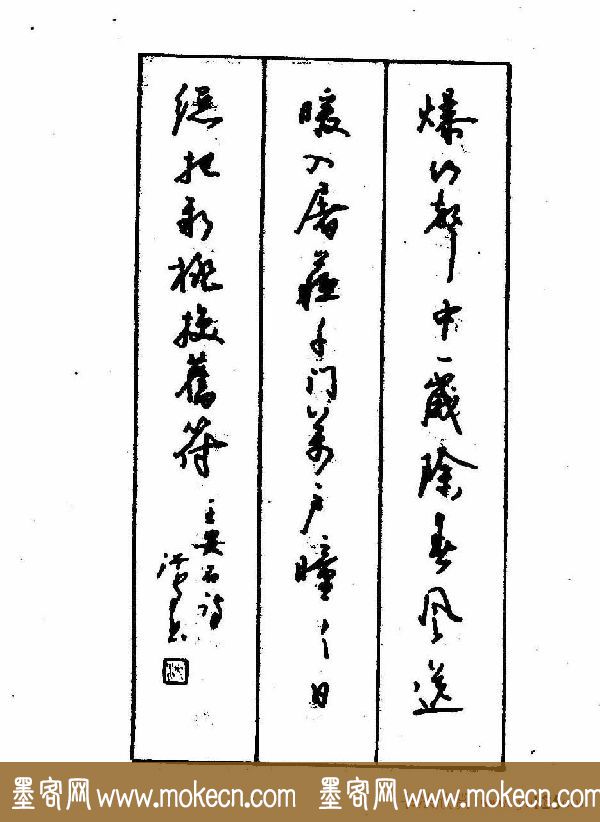 爆竹声中一歳除春风送
暖入屠蘇千门萬户曈々日
總把新桃换舊符
王安石诗
墨客网 www.mokecn.com 墨客网 www.mokecn.com